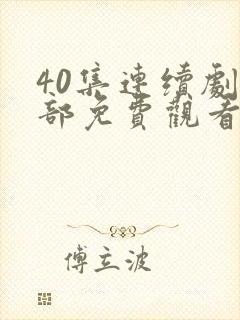 40集連續劇
部免費觀看
傅立波